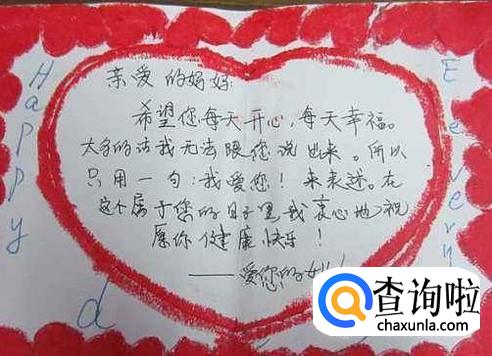 亲爱的妈妈:
希望您每天开心,每天幸福。
太多的话我无法跟您说出来。所以
只用一句:我爱您!来表述。在
这个属于您的日子里,我衷心地祝
愿你健康快乐!
——爱您的
Happy
d
Ever
查询啦
chaxunla.com